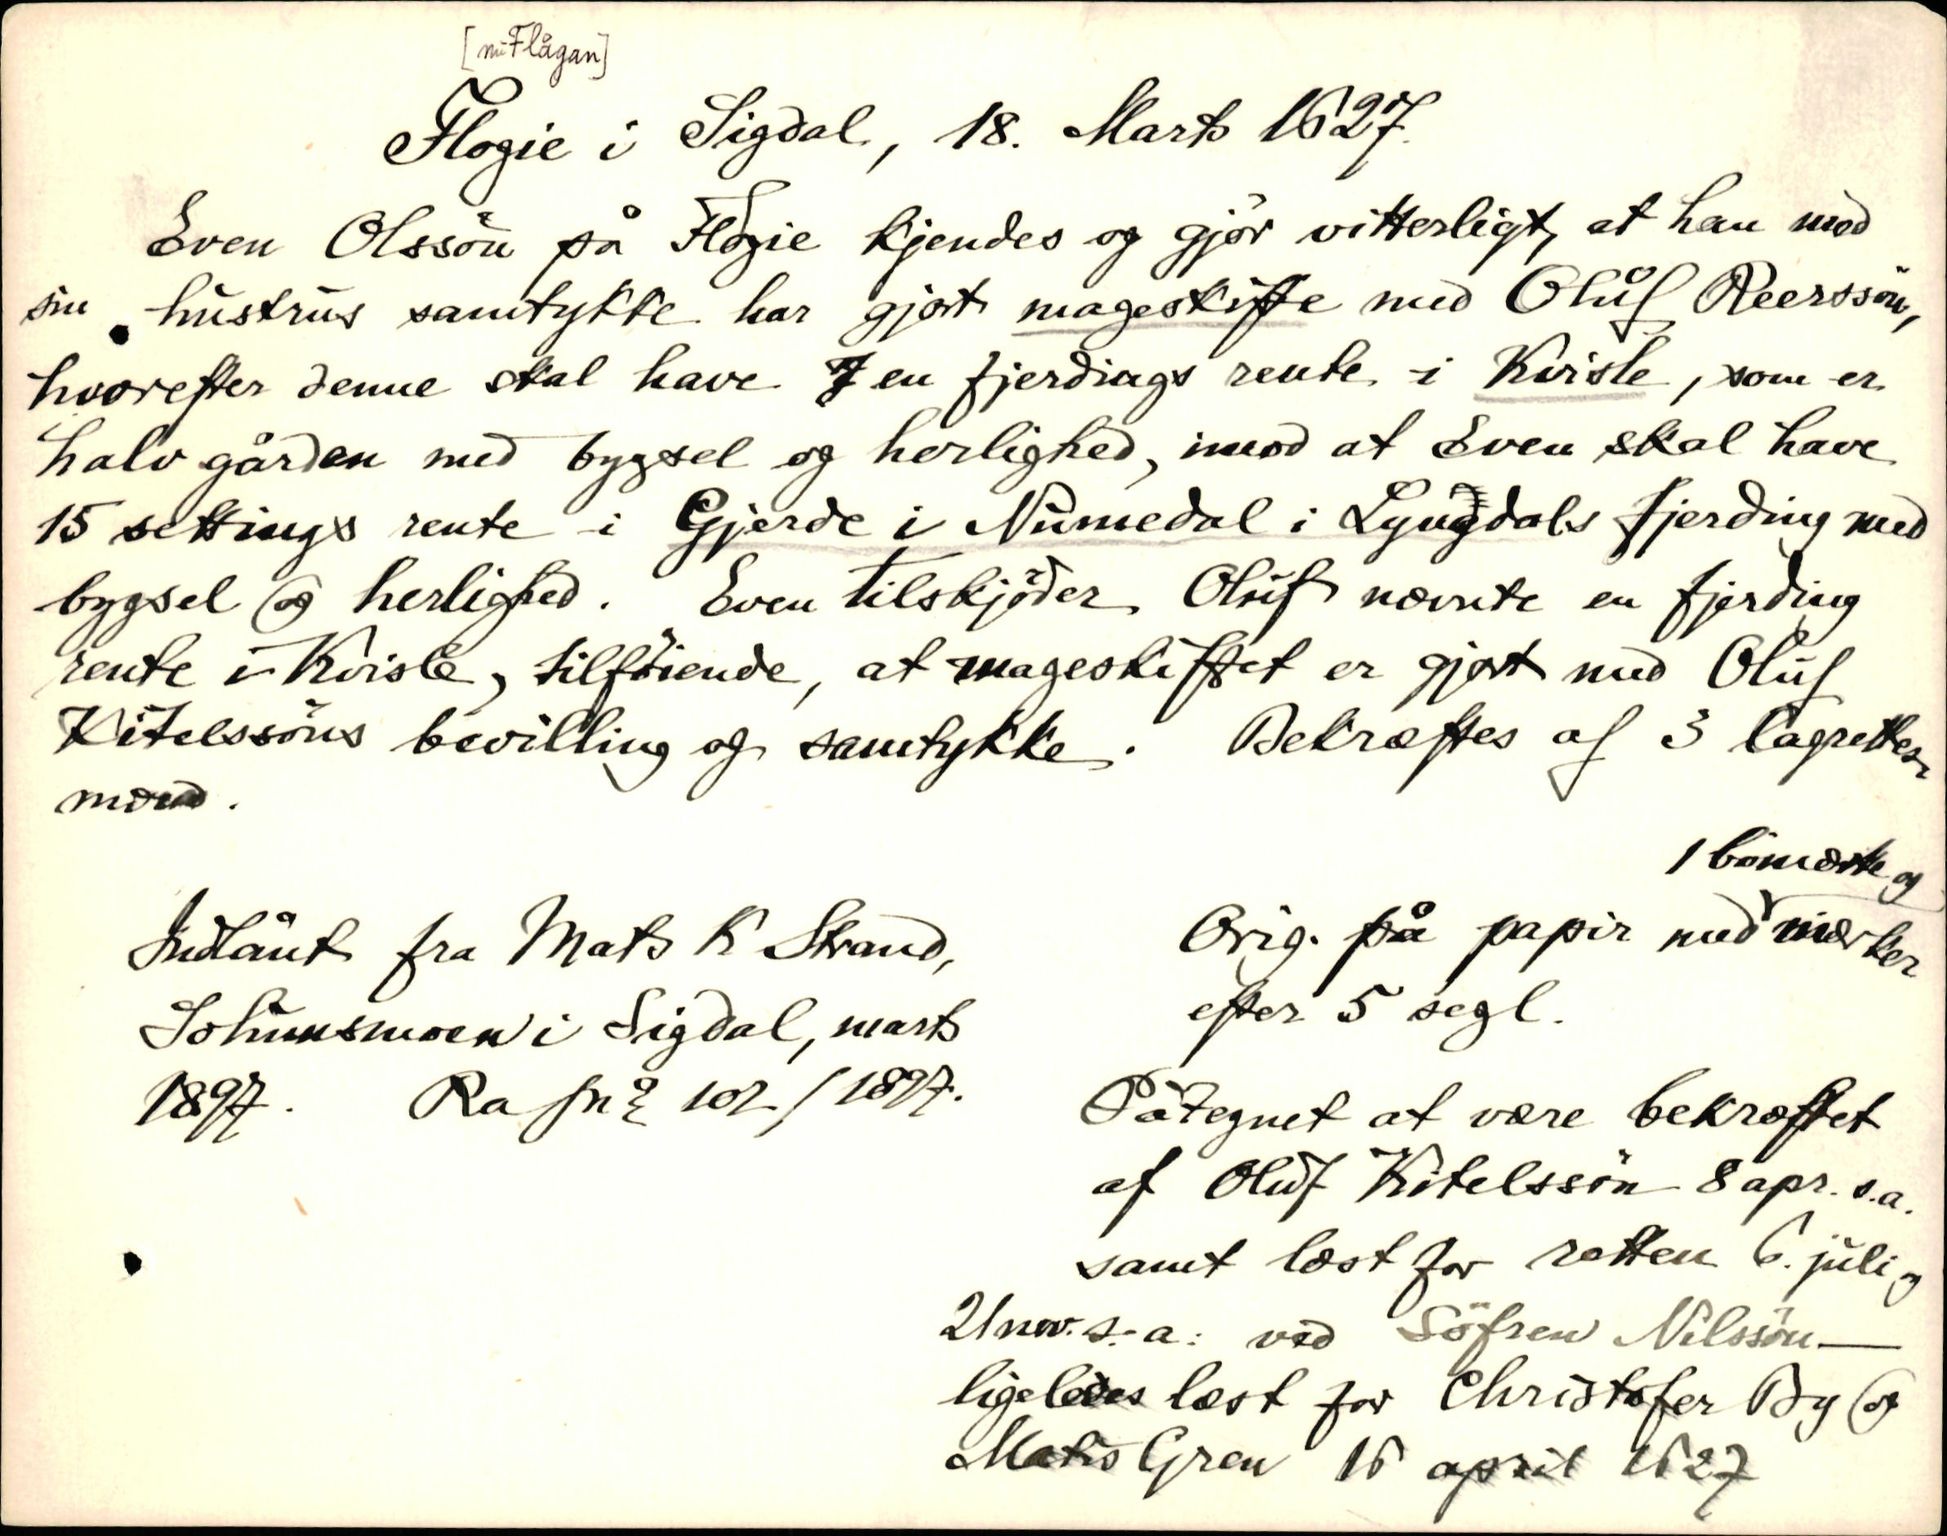 [nu Flågan]
Flogie i Sigdal, 18. Marts 1627.
Even Olssön på Flogie kjendes og gjör vitterligt, at han med
sin hustrus samtykke har gjort mageskifte med Oluf Reerssön,
hvorefter denne skal have en fjerdings rente i Kvisle, som er
halv gården med bygsel og herlighed, imod at Even skal have
15 settings rente i Gjerde i Numedal i Lyngdals fjerding med
bygsel og herlighed. Even tilskjöder Oluf nævnte en fjerding
rente i Kvisle, tilföiende, at mageskiftet er gjort med Oluf
Kitelssöns bevilling og samtykke. Bekræftes af 3 lagrettes
mænd.
1 bomærke og
Orig. på papir med mærker
efter 5 segl.
Indlånt fra Mats K Strand,
i Sigdal, marts
1897. Ra jn: 102/1897.
Påtegnet at være bekræftet
af Oluf Kitelssön 8 apr. s.a.
samt læst for retten 6. juli og
21 nov. s.a. ved Söfren Nilssön —
ligeledes læst for Christofer By og
Mats Gren 16 april 1627